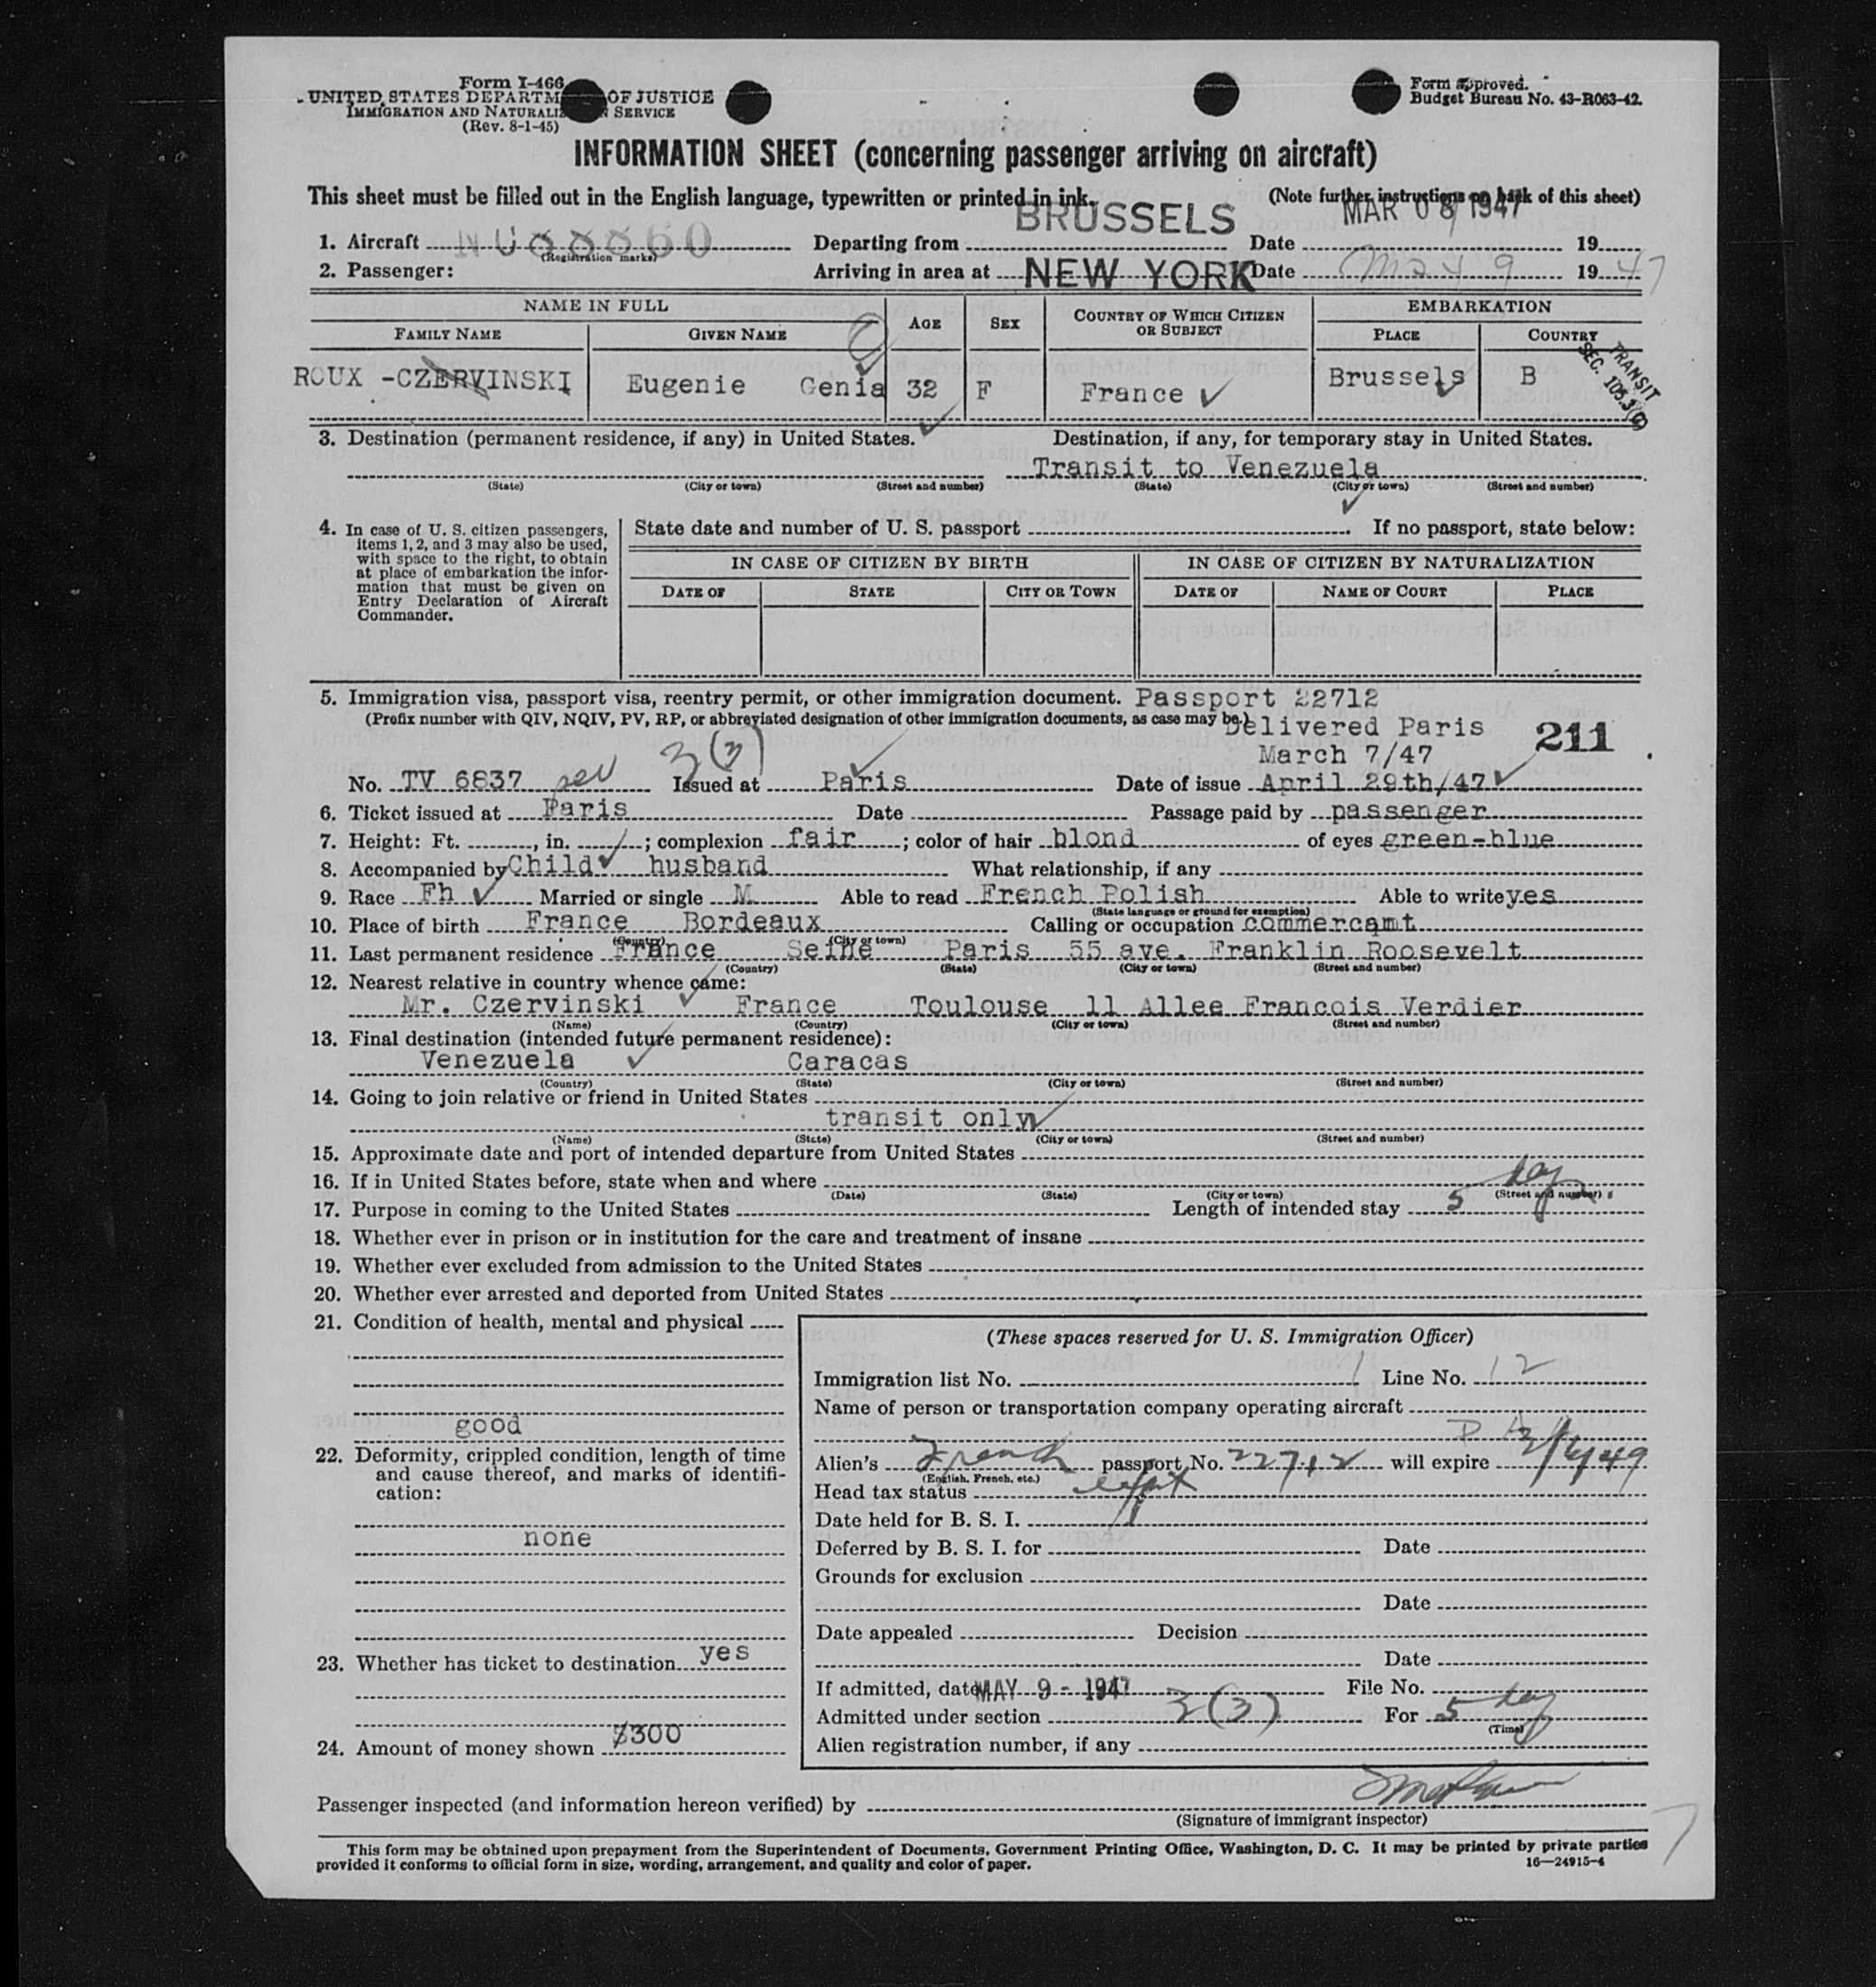 Form I-466
UNITED STATES DEPARTM OF JUSTICE
IMMIGRATION AND NATURALIZ N SERVICE
(Rev. 8-1-45)
Form approved.
Budget Bureau No. 43-R063-42.
INFORMATION SHEET (concerning passenger arriving on aircraft)
This sheet must be filled out in the English language, typewritten or printed in ink. (Note further instructions on back of this sheet)
1. Aircraft (Registration marks) Departing from BRUSSELS Date MAR 08 1947 19
2. Passenger: Arriving in area at NEW YORK Date May 9 19 47
NAME IN FULL AGE SEX COUNTRY OF WHICH CITIZEN OR SUBJECT EMBARKATION
FAMILY NAME GIVEN NAME PLACE COUNTRY
ROUX -CZERVINSKI Eugenie Genia 32 F France Brussels B
TRANSIT
SEC. 103.3(C)
3. Destination (permanent residence, if any) in United States. Destination, if any, for temporary stay in United States.
Transit to Venezuela
(State) (City or town) (Street and number) (State) (City or town) (Street and number)
4. In case of U. S. citizen passengers, items 1, 2, and 3 may also be used, with space to the right, to obtain at place of embarkation the information that must be given on Entry Declaration of Aircraft Commander.
State date and number of U. S. passport If no passport, state below:
IN CASE OF CITIZEN BY BIRTH IN CASE OF CITIZEN BY NATURALIZATION
DATE OF STATE CITY OR TOWN DATE OF NAME OF COURT PLACE
5. Immigration visa, passport visa, reentry permit, or other immigration document. Passport 22712
(Prefix number with QIV, NQIV, PV, RP, or abbreviated designation of other immigration documents, as case may be.) Delivered Paris
3(3) March 7/47 211
No. TV 6837 Issued at Paris Date of issue April 29th/47
6. Ticket issued at Paris Date Passage paid by passenger
7. Height: Ft. , in. ; complexion fair ; color of hair blond of eyes green-blue
8. Accompanied by Child husband What relationship, if any
9. Race Fh Married or single M Able to read French Polish Able to write yes
(State language or ground for exemption)
10. Place of birth France Bordeaux Calling or occupation commercamt
(Country) (City or town)
11. Last permanent residence France Seine Paris 55 ave. Franklin Roosevelt
(Country) (State) (City or town) (Street and number)
12. Nearest relative in country whence came:
Mr. Czervinski France Toulouse 11 Allee Francois Verdier
(Name) (Country) (City or town) (Street and number)
13. Final destination (intended future permanent residence):
Venezuela Caracas
(Country) (State) (City or town) (Street and number)
14. Going to join relative or friend in United States
transit only
(Name) (State) (City or town) (Street and number)
15. Approximate date and port of intended departure from United States
16. If in United States before, state when and where
(Date) (State) (City or town) (Street and number)
17. Purpose in coming to the United States Length of intended stay 5 day
18. Whether ever in prison or in institution for the care and treatment of insane
19. Whether ever excluded from admission to the United States
20. Whether ever arrested and deported from United States
21. Condition of health, mental and physical
good
22. Deformity, crippled condition, length of time and cause thereof, and marks of identification:
none
23. Whether has ticket to destination yes
24. Amount of money shown $300
(These spaces reserved for U. S. Immigration Officer)
Immigration list No. 1 Line No. 12
Name of person or transportation company operating aircraft
Alien's French passport No. 22712 will expire
(English, French, etc.)
Head tax status
Date held for B. S. I.
Deferred by B. S. I. for Date
Grounds for exclusion
Date
Date appealed Decision
Date
If admitted, date MAY 9 - 1947 File No.
Admitted under section 3(3) For 5 day
(Time)
Alien registration number, if any
Passenger inspected (and information hereon verified) by
(Signature of immigrant inspector)
This form may be obtained upon prepayment from the Superintendent of Documents, Government Printing Office, Washington, D. C. It may be printed by private parties
provided it conforms to official form in size, wording, arrangement, and quality and color of paper. 16—24915-4